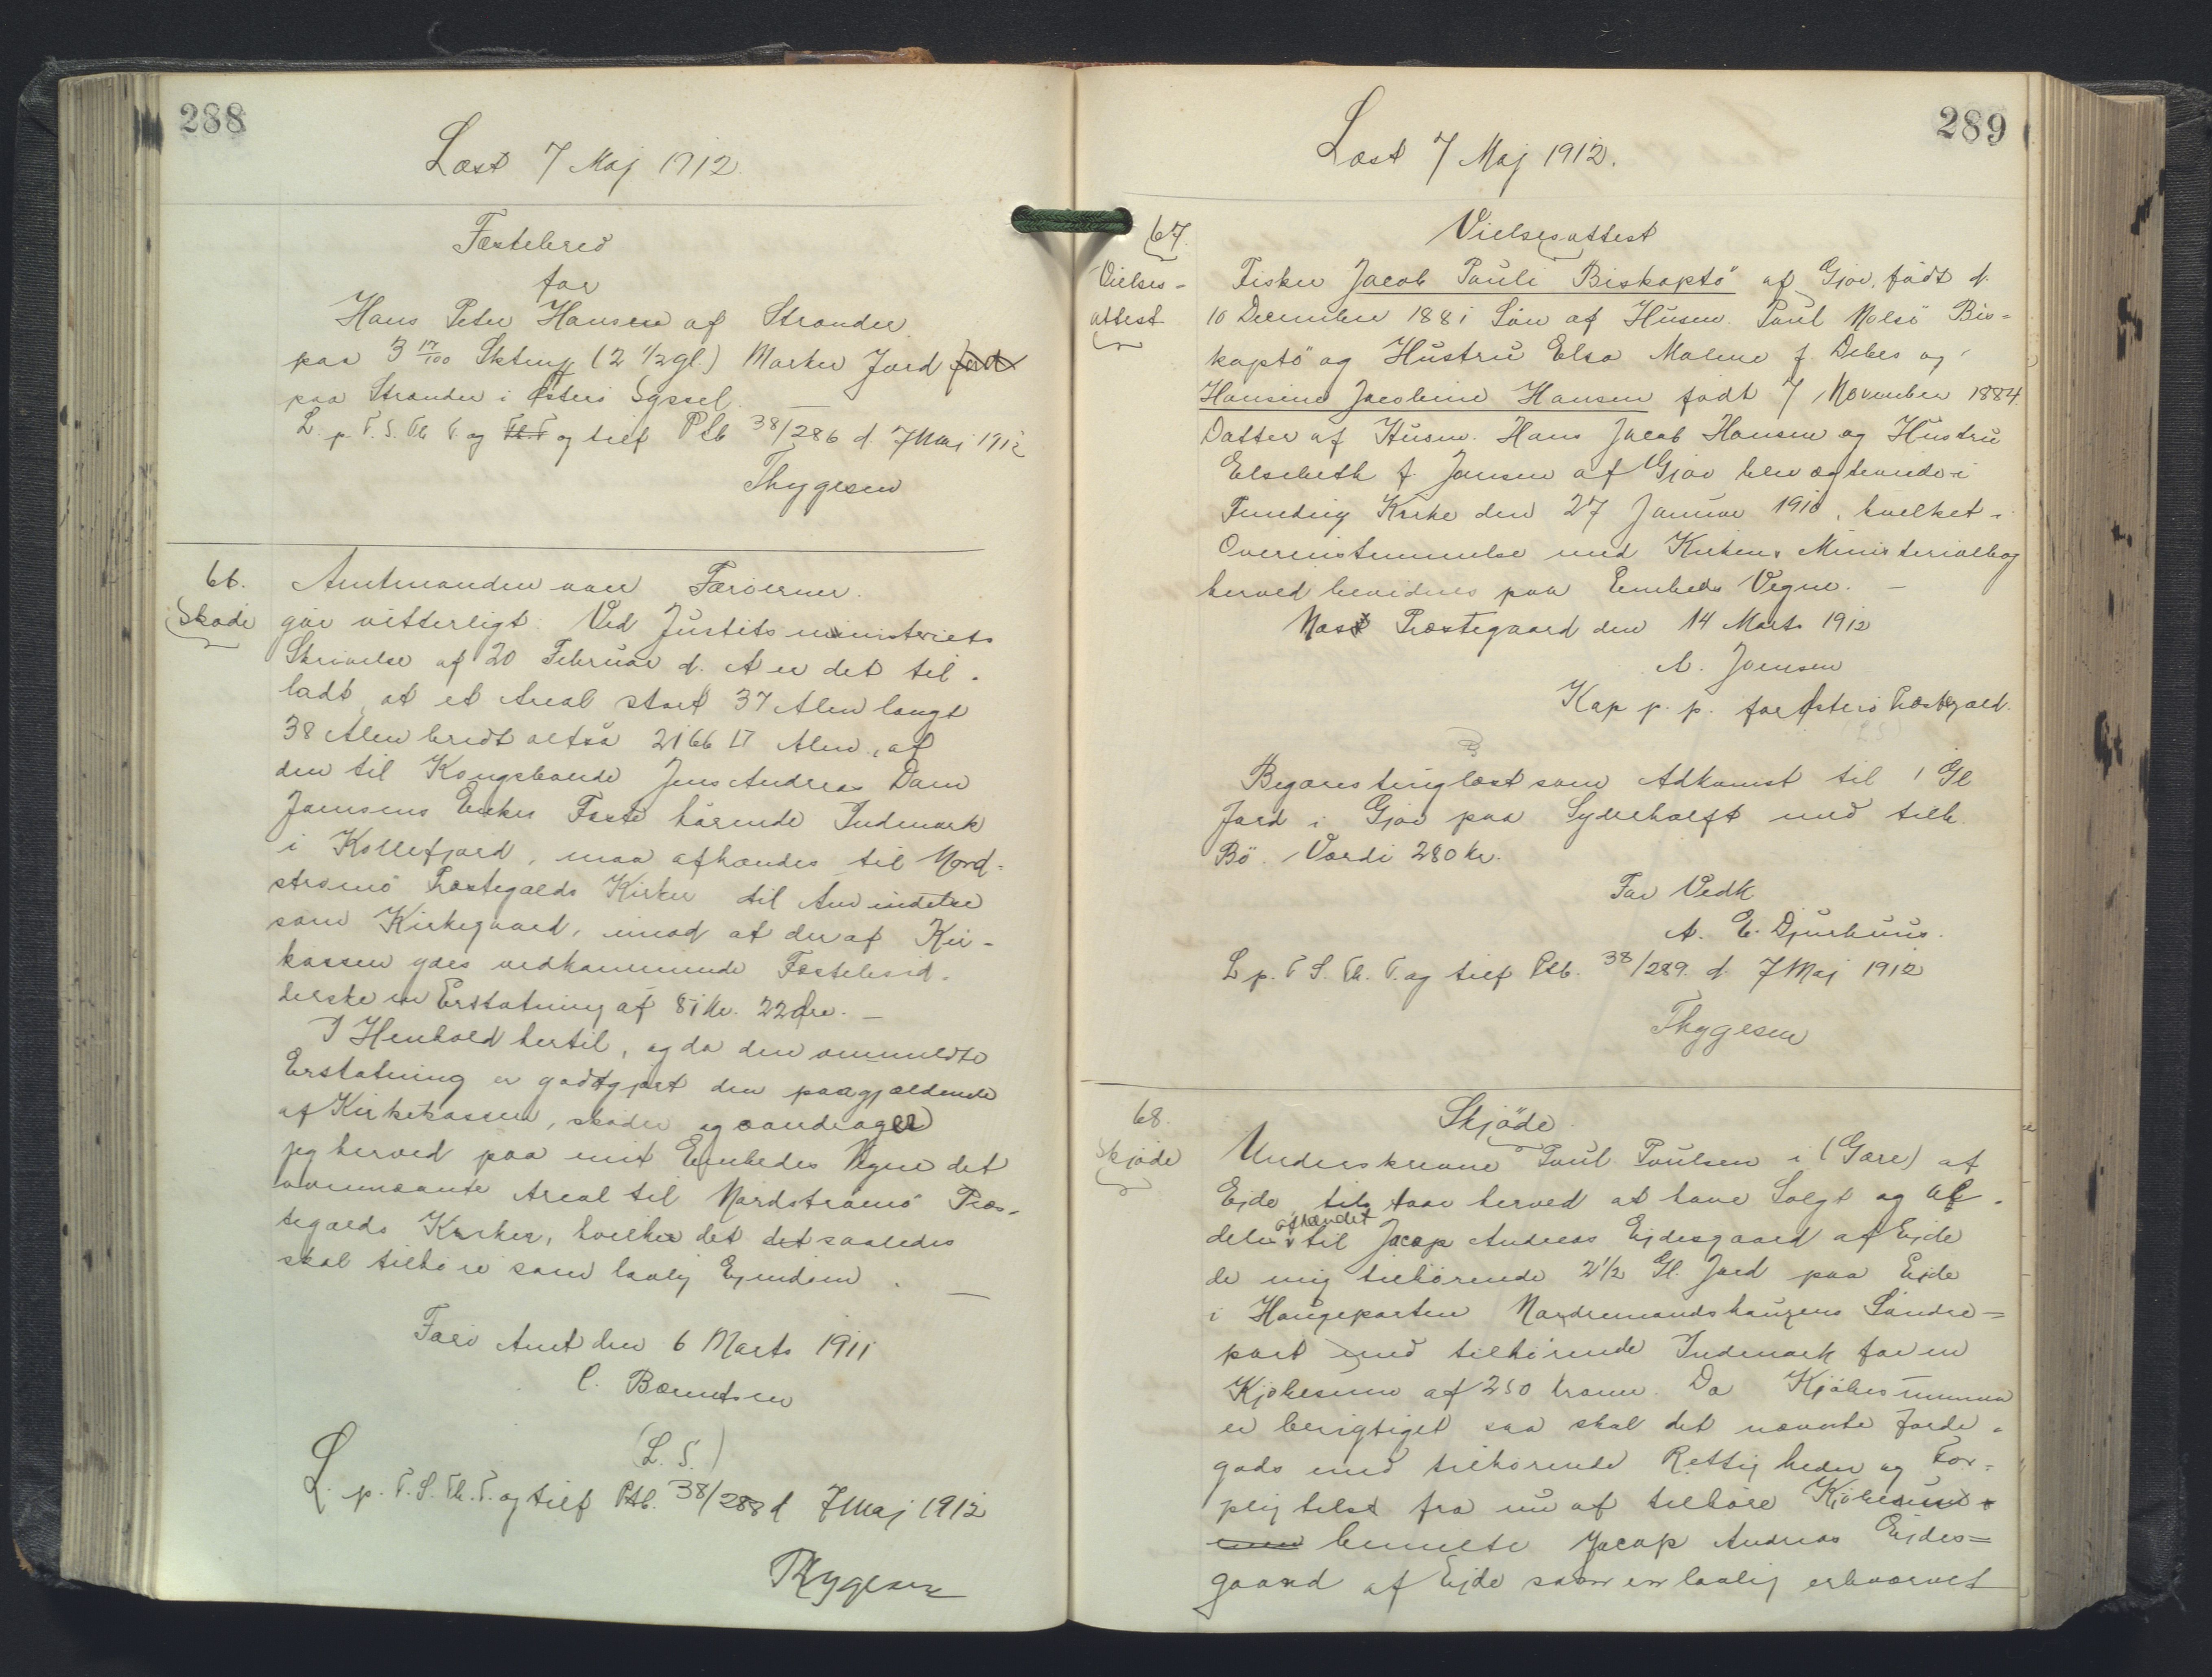 288
Læst 7 Maj 1912
Fæstebrev
for
Hans Peter Hansen af Strander
paa 3 17/100 Sktmp (2 1/2 gl.) Marker Jord
paa Strander i Østerø Syssel.
L. p. F. S. Th. T. og tilf Ptb 38/286 d. 7 Maj 1912
Thygesen
66.
Skøde
Amtmanden over Færøerne.
gør vitterligt: Ved Justitsministeriets
Skrivelse af 20 Februar d. A er det til-
ladt, at et Areal stort 37 Alen langt
38 Alen bredt altså 2166 □ Alen, af
den til Kongsbonde Jens Andreas Dam
Joensens Enkes Fæste hørende Indmark
i Kollefjord, maa afhændes til Nord-
strømø Præstegælds Kirker til Anvendelse
som Kirkegaard, imod at der af Kir-
kassen gøes vedkommende Fæstebesid-
derske en Erstatning af 81 Kr. 22 Øre. —
I Henhold hertil, og da den ommeldte
Erstatning er godtgjort den paagjældende
af Kirkekassen, skøder og overdrager
jeg herved paa mit Embedes Vegne det
ovennævnte Areal til Nordstrømø Præs-
tegælds Kirker, hvilke det det saaledes
skal tilhøre som lovlig Ejendom. —
Færø Amt den 6 Marts 1911
C. Bærentsen
(L. S.)
L. p. F. S. Th. T. og tilf Ptb. 38/288 d 7 Maj 1912
Thygesen
289
Læst 7 Maj 1912.
67.
Vielses-
attest
Vielsesattest
Fisker Jacob Pauli Biskoptø af Gjov, født d.
10 December 1881 Søn af Husm. Poul Nolsø Bis-
koptø og Hustru Elsa Malene f. Debes og
Hansine Jacobine Hansen født 7 November 1884.
Datter af Husm. Hans Jacob Hansen og Hustru
Elsebeth f. Jensen af Gjov blev ægteviede i
Funding Kirke den 27 Januar 1910, hvilket.
Overensstemmelse med Kirkens Ministerialbog
herved bevidnes paa Embeds Vegne. —
Næs Præstegaard den 14 Marts 1912
A. Joensen
Kap p. p. for Østerø Præstegæld.
(L S)
Begæres tinglæst som Adkomst til 1 Gl
Jord i Gjov paa Syderhalft med tilh.
Bø. Værdi 280 kr.
For Vedk
A. E. Djurhuus.
L p. F S. Th. T. og tilf Ptb. 38/289. d. 7 Maj 1912
Thygesen
68.
Skjøde
Skjøde.
Underskrevne Poul Poulsen i (Gare) af
Ejde tils taar herved at have Solgt og af-
afhændet
delen til Jacop Andreas Ejdesgaard af Ejde
de mig tilhørende 2 1/2 Gl. Jord paa Ejde
i Haugeparten Nordremandshaugens Søndre=
part med tilhørende Indmark for en
Kjøbesum af 250 kroner. Da Kjøbesummen
er berigtiget saa skal det nævnte Jorde-
gods med tilhørende Rettigheder og For=
pligtelse fra nu af tilhøre
benævnte Jacop Andreas Ejdes=
gaard af Ejde som en lovlig erhvervet